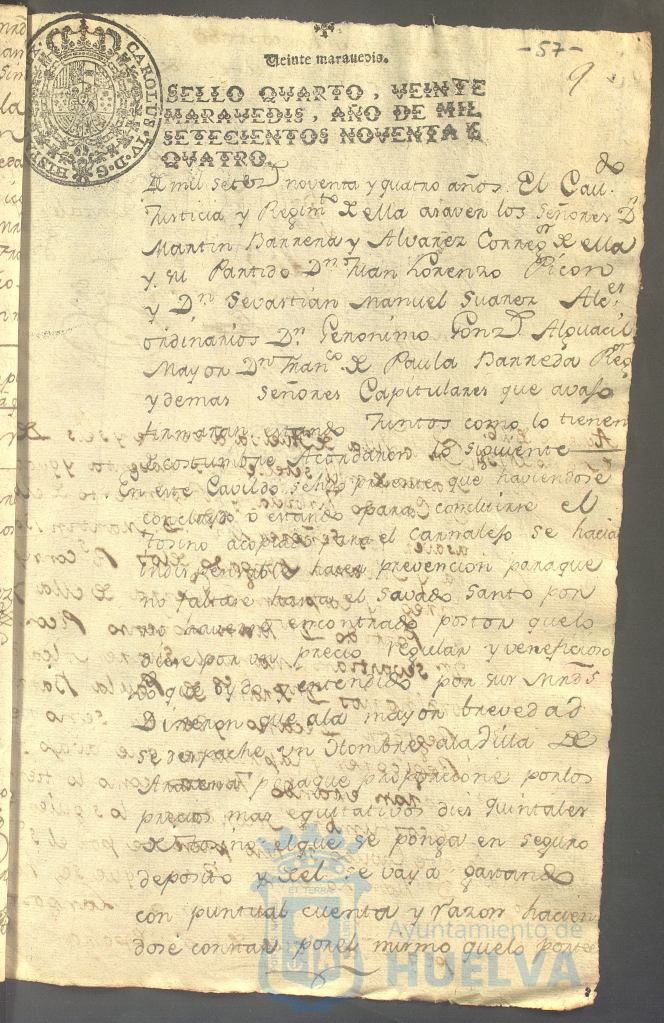 -57-
9
Veinte marauedis.
SELLO QVARTO, VEINTE
MARAVEDIS, AÑO DE MIL
SETECIENTOS NOVENTA E
QVATRO.
CAROLUS IV D G HISP
mil setez.s noventa y quatro años. El Cavdo
Justicia y Regimto de ella asaver los Señores Dn
Martin Barrena y Alvarez Corregor de ella
y su Partido Dn Juan Lorenzo Picon
y Dn Sevastian Manuel Suarez Alces
ordinarios Dn Geronimo Gonzs Alguacil
Mayor Dn Franco de Paula Barreda Regor
y demas Señores Capitulares que avaxo
firmaran estando Juntos como lo tienen
de costumbre Acordaron lo siguiente
En este Cavildo se hizo presente que haviendose
concluido o estando para concluirse el
tosino acopiado para el carnalejo se hacia
indispensable hacer prevencion paraque
no faltase hasta el Savado Santo por
no haverse encontrado postor quelo
diese por un precio regular y veneficioso
lo que oydo y entendido por sus Mrds
Dixeron que ala mayor brevedad
se despache un Hombre ala Villa de
paraque proporcione porlos
precios mas equitativos dies quintales
de tosino elque se ponga en seguro
deposito y del se vaya gastando
con puntual cuenta y razon hacien
dose constar porel mismo quelo
Ayuntamiento de
HUELVA